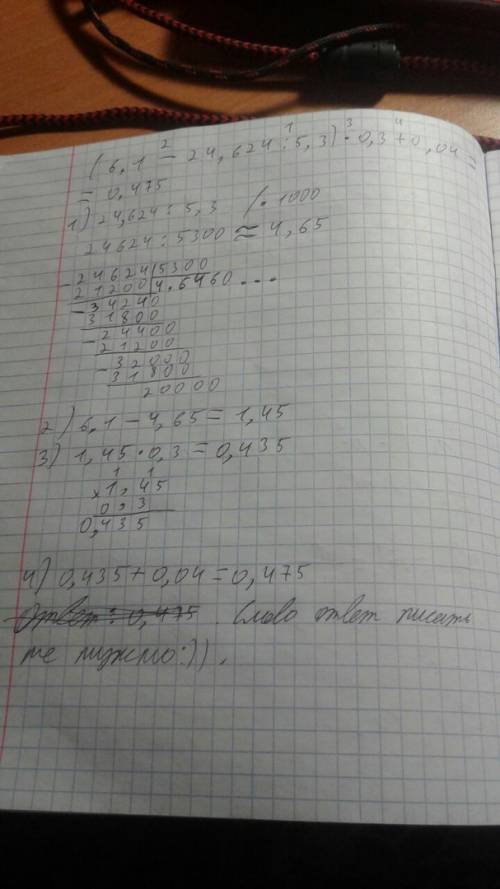 (6,1 − 24,624 : 5,3) · 0,3 + 0,04 =
2 1 3 4
= 0,475
1) 24,624 : 5,3 | · 1000
24624 : 5300 ≈ 4,65
− 24624 | 5300
21200 | 4.6460...
− 34240
31800
− 24400
21200
− 32000
31800
20000
2) 6,1 − 4,65 = 1,45
3) 1,45 · 0,3 = 0,435
1 1
× 1,45
0,3
0,435
4) 0,435 + 0,04 = 0,475
Ответ: 0,475. Слово ответ писать
не нужно:)).